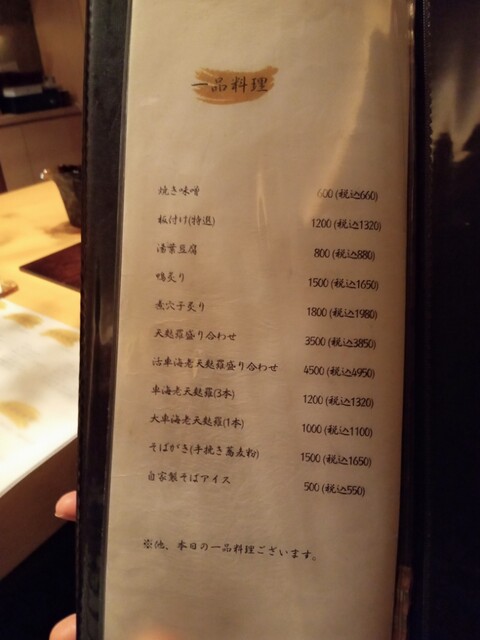 一品料理
焼き味噌 600(税込660)
板付け(特選) 1200(税込1320)
湯葉豆腐 800(税込880)
鴨炙り 1500(税込1650)
煮穴子炙り 1800(税込1980)
天麩羅盛り合わせ 3500(税込3850)
活車海老天麩羅盛り合わせ 4500(税込4950)
車海老天麩羅(3本) 1200(税込1320)
大車海老天麩羅(1本) 1000(税込1100)
そばがき(手挽き蕎麦粉) 1500(税込1650)
自家製そばアイス 500(税込550)
※他、本日の一品料理ございます。